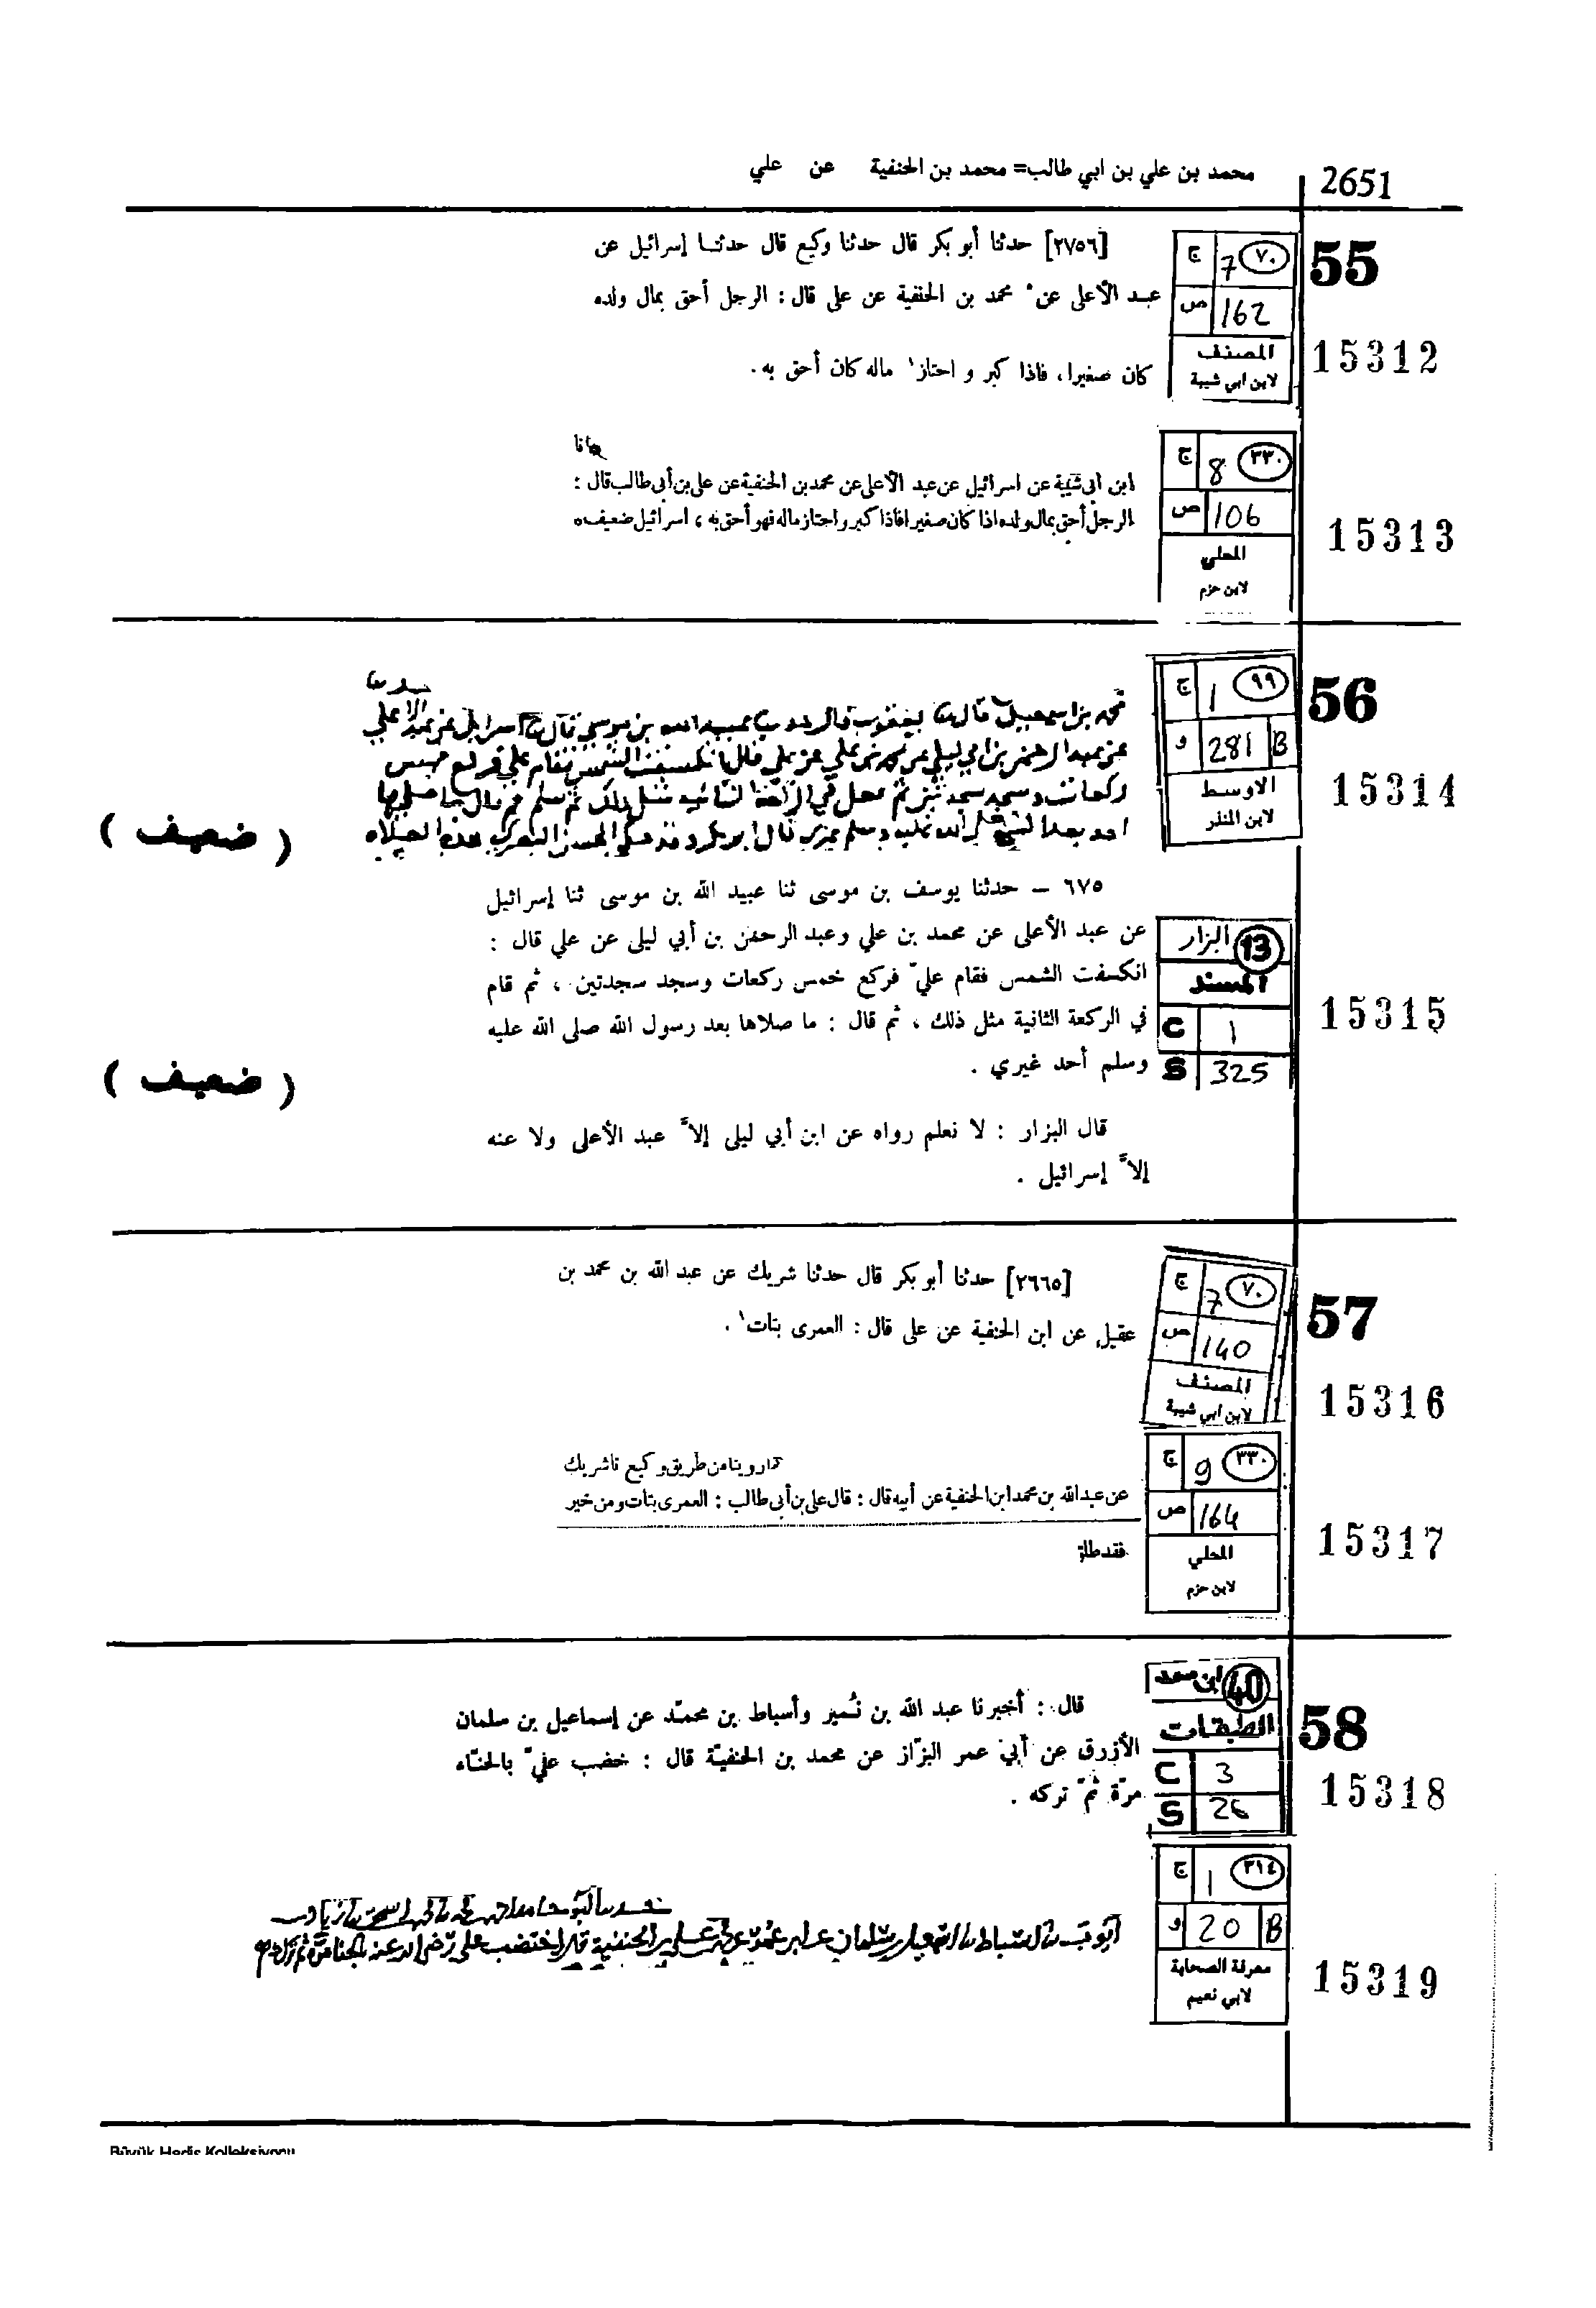 2651
محمد بن علي بن ابي طالب= محمد بن الحنفية عن علي
55
ج 7 ٧٠
ص 162
المصنف
لابن ابي شيبة
15312
[٢٧٥٦] حدثنا أبو بكر قال حدثنا وكيع قال حدثنا إسرائيل عن
عبد الأعلى عن محمد بن الحنفية عن على قال : الرجل أحق بمال ولده
كان صغيرا، فاذا كبر و احتاز١ ماله كان أحق به .
ج 8 ٣٣٠
ص 106
المحلي
لابن حزم
15313
ابن أبى شيبة عن اسرائيل عن عبد الأعلى عن محمد بن الحنفية عن على بن أبى طالب قال :
الرجل أحق بمال ولده اذا كان صغيرا فاذا كبر واحتاز ماله فهو أحق به ، اسرائيل ضعيف
56
ج 1 ٩٩
و 281 B
الاوسط
لابن المنذر
15314
محمد بن اسمعيل قال يعقوب قال عبيد الله بن موسى قال اسرائيل عن عبد الاعلي
عن عبد الرحمن بن ابي ليلي عن محمد بن علي عن علي قال انكسفت الشمس فقام علي فركع خمس
ركعات وسجد سجدتين ثم فعل في الركعة الثانية مثل ذلك ثم سلم ثم قال ما صلاها
احد بعد النبي صلى الله عليه وسلم غيري قال ابو بكر وقد حكي الحسن البصري هذه الصلاة
( ضعيف )
البزار 13
المسند
C 1
S 325
15315
٦٧٥ – حدثنا يوسف بن موسى ثنا عبيد الله بن موسى ثنا إسرائيل
عن عبد الأعلى عن محمد بن علي وعبد الرحمن بن أبي ليلى عن علي قال :
انكسفت الشمس فقام عليّ فركع خمس ركعات وسجد سجدتين ، ثم قام
في الركعة الثانية مثل ذلك ، ثم قال : ما صلاها بعد رسول الله صلى الله عليه
وسلم أحد غيري .
( ضعيف )
قال البزار : لا نعلم رواه عن ابن أبي ليلى إلاّ عبد الأعلى ولا عنه
إلاّ إسرائيل .
57
ج 7 ٧٠
ص 140
المصنف
لابن ابي شيبة
15316
[٢٦٦٥] حدثنا أبو بكر قال حدثنا شريك عن عبد الله بن محمد بن
عقيل عن ابن الحنفية عن على قال : العمرى بتات١ .
ج 9 ٣٣٠
ص 164
المحلي
لابن حزم
15317
روينا من طريق وكيع نا شريك
عن عبد الله بن محمد ابن الحنفية عن أبيه قال : قال على بن أبى طالب : العمرى بتات ومن خير
فقد طلق
58
ابن سعد 40
الطبقات
C 3
S 26
15318
قال : أخبرنا عبد الله بن نُمير وأسباط بن محمّد عن إسماعيل بن سلمان
الأزرق عن أبي عمر البزّاز عن محمد بن الحنفيّة قال : خضب عليّ بالحنّاء
مرّة ثمّ تركه .
ج 1 ٣١٤
و 20 B
معرفة الصحابة
لابي نعيم
15319
بن سلمان عن ابي عمر عن محمد بن الحنفية قال اختضب علي رضي الله عنه بالحنا مرة ثم تركه
Büyük Hadis Kolleksiyonu